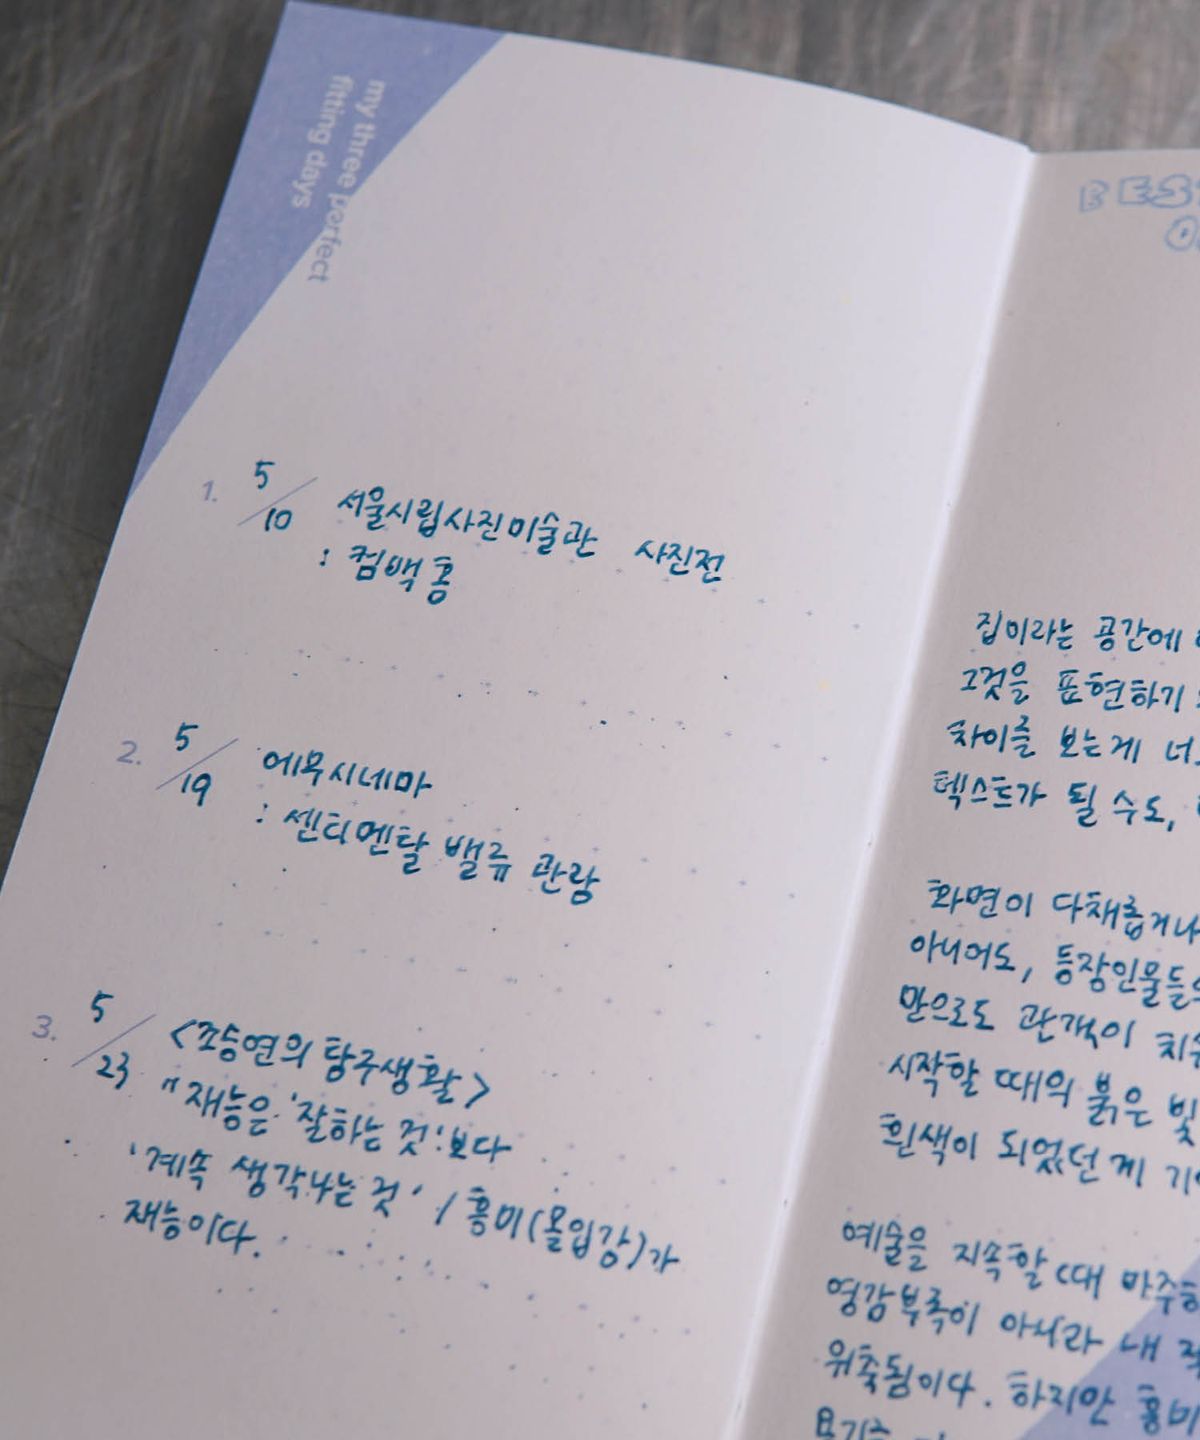 my three perfect
fitting days
1. 5/10 서울시립사진미술관 사진전
: 컴백홈
2. 5/19 에무시네마
: 센티멘탈 밸류 관람
3. 5/23 <조승연의 탐구생활>
"재능은 '잘하는 것'보다
'계속 생각나는 것' / 흥미(몰입감)가
재능이다.
BES
집이라는 공간에
그것을 표현하기
차이를 보는게
텍스트가 될 수도,
화면이 다채롭거나
아니어도, 등장인물들
만으로도 관객이
시작할 때의 붉은 빛
흰색이 되었던 게
예술을 지속할 때 마주하
영감부족이 아니라 내
위축됨이다. 하지만 흥미